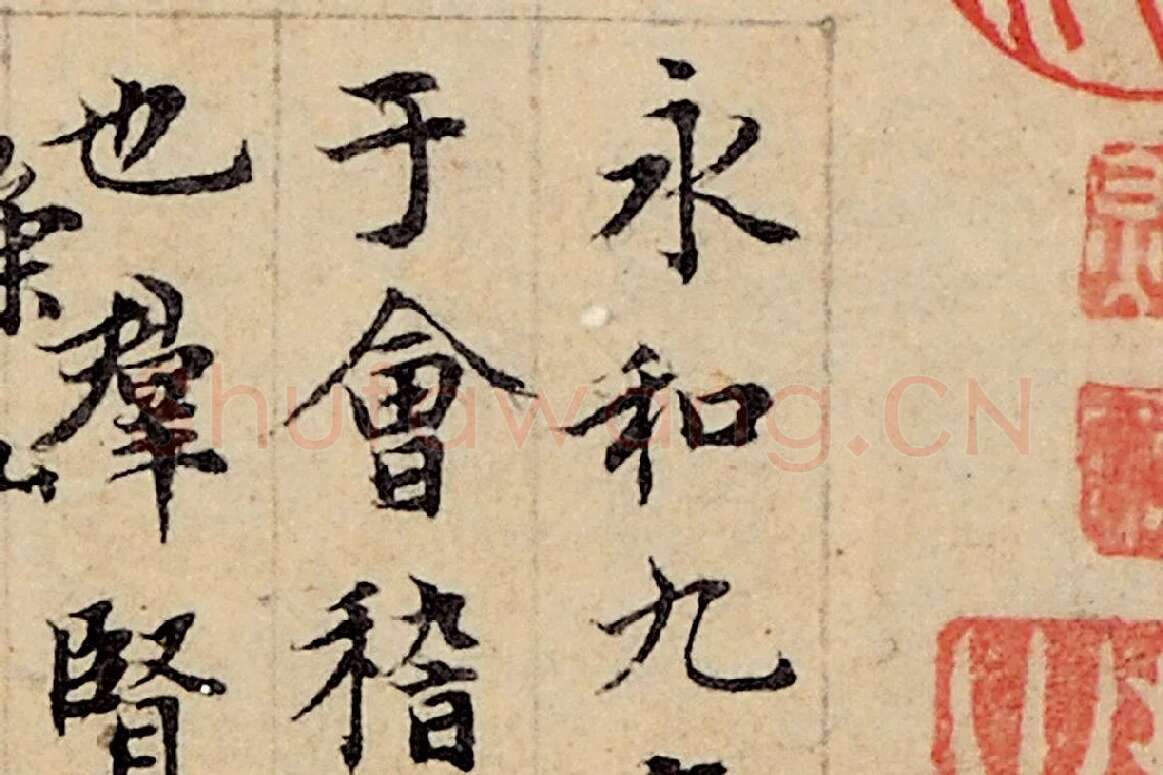 永和九
于會稽
也羣賢
shufawang.CN